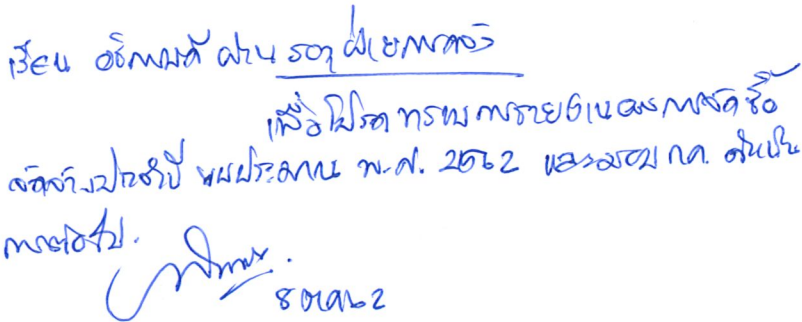 เรียน อธิการบดี ผ่าน รองฝ่ายการคลัง
เพื่อโปรดทราบการรายงานผลการจัดซื้อ
จัดจ้างประจำปี งบประมาณ พ.ศ. 2562 และมอบ กค. ดำเนิน
การต่อไป.
8 ตค 62